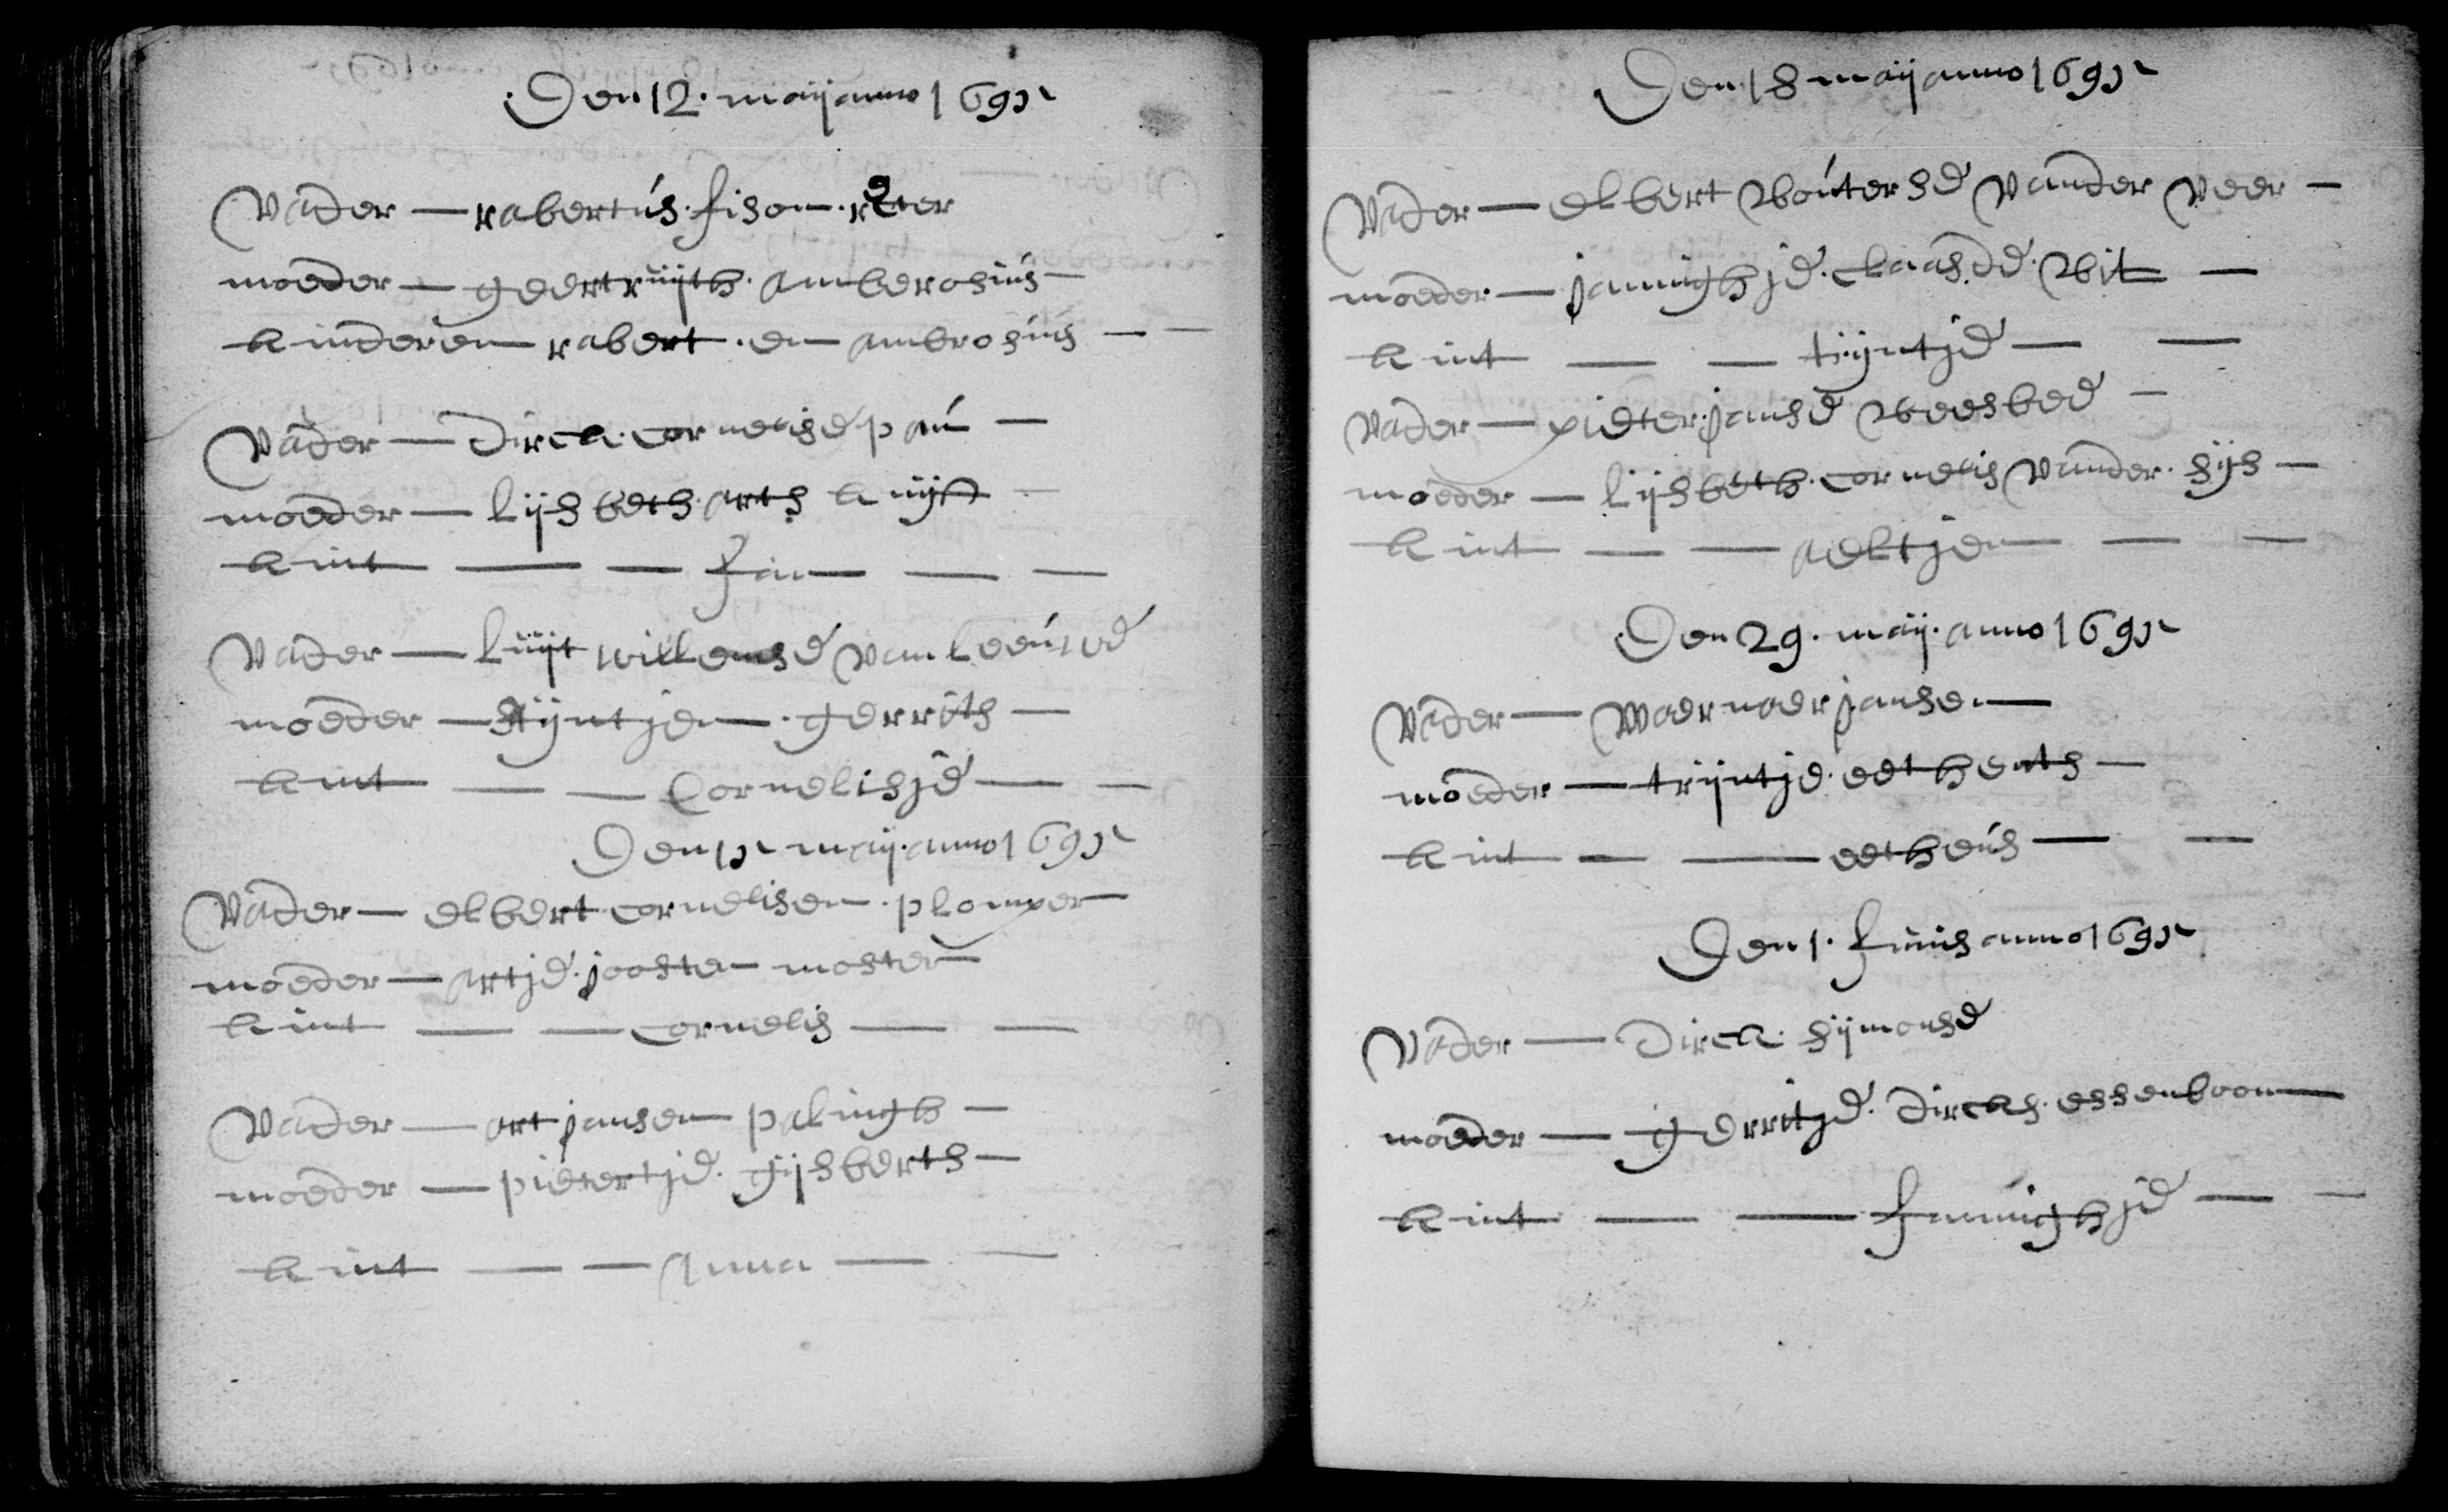 Den 12. maij anno 1695
Vader — rabertus. fison.
moeder — geertruijth. amberosius —
kinderen rabert. en ambrosius — —
Vader — Dirck. cornelise pau —
moeder — lijsbeth. arts kuijst —
kint — — Jan — —
Vader — luijt willemse van leeuwe
moeder — stijntjen. gerrits —
kint — — Cornelisje — —
Den 15 maij. anno 1695
Vader — elbert cornelisen. plomper
moeder — artje. joosten moster
kint — — cornelis — —
Vader — art jansen palingh —
moeder — pietertje. gijsberts —
kint — — Anna — —
Den 18 maij anno 1695
Vader — elbert wouterse vander veer —
moeder — jannighje. claas. de. wit —
kint — — trijntje — —
Vader — pieter. janse weesbee —
moeder — lijsbeth. cornelis vander. sijs —
kint — — aeltjen — —
Den 29. maij. anno 1695
Vader — Waernaer jansen —
moeder — trijntje. eetheuts —
kint — — eetheus — —
Den 1. Junis anno 1695
Vader — Dirck. sijmonse
moeder — gerritje. dircks. essenboom
kint — — Jannighje — —